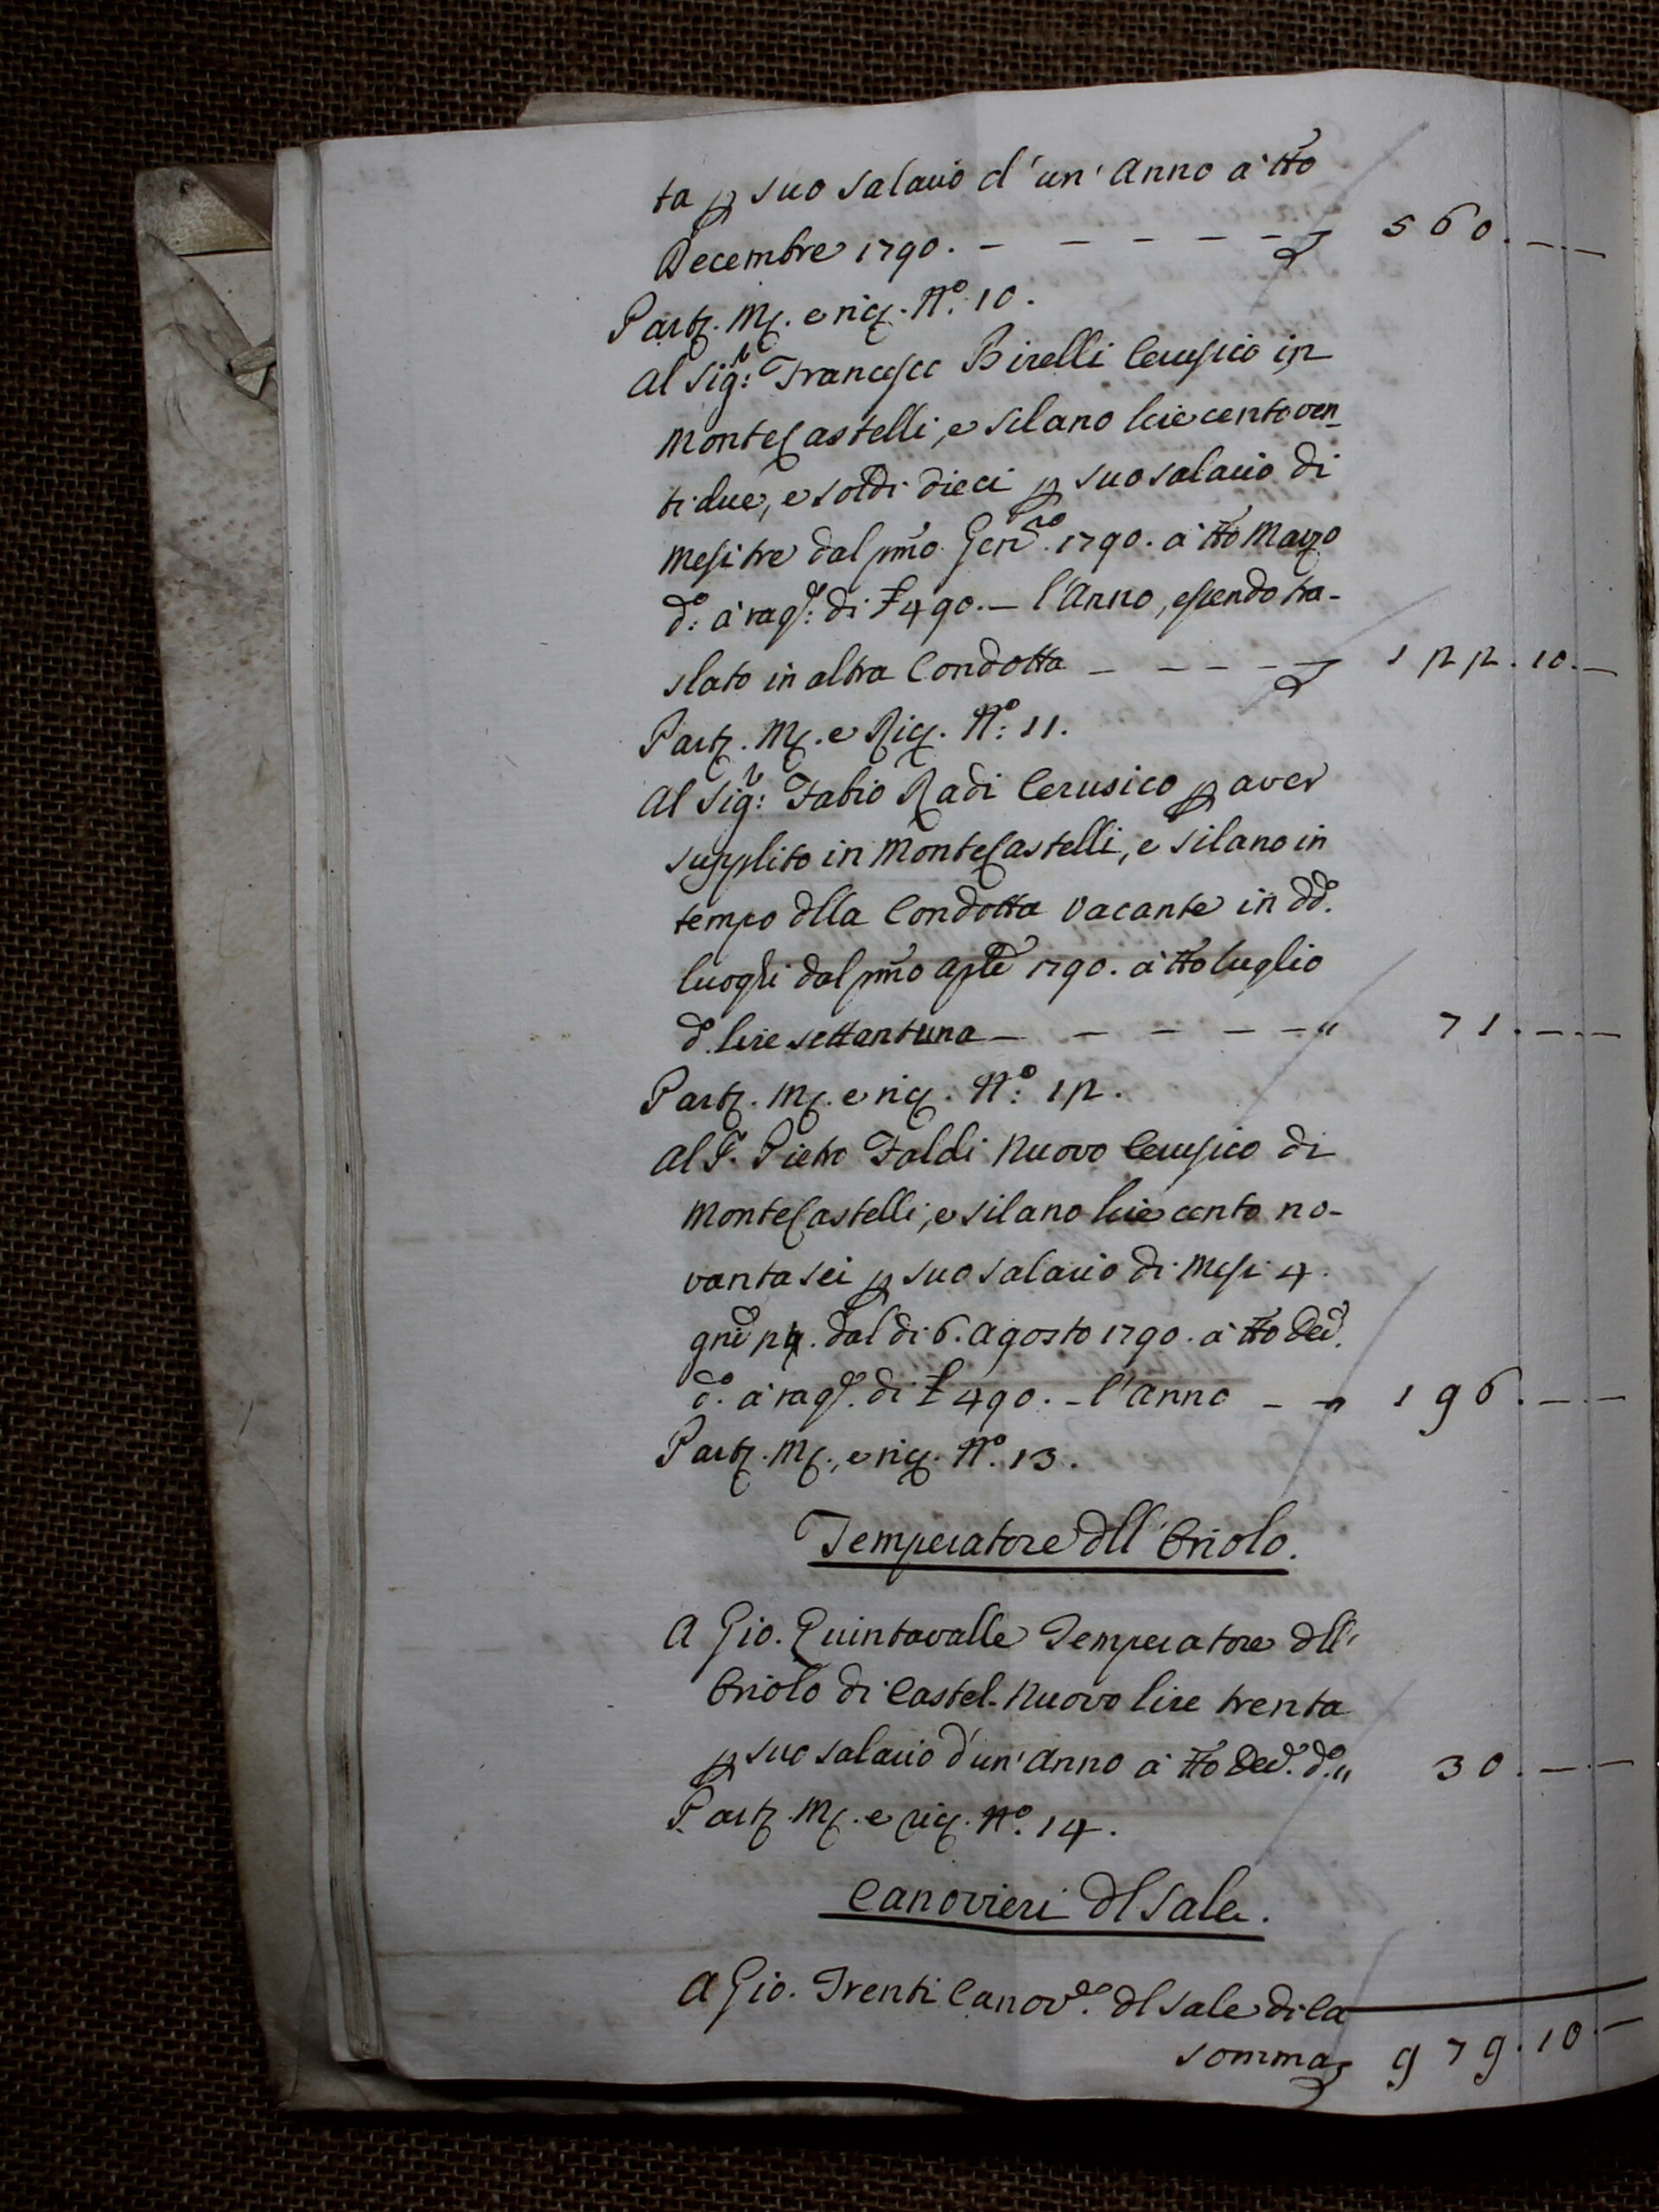 ta p suo salario d'un'Anno a tto
Decembre 1790. - - - - - - £ 560. -. -
Part. Mg. e ric. N.o 10.
Al Sig.r Francesco Birelli Cerusico in
MonteCastelli, e Silano lire cento ven-
tidue, e soldi dieci p suo salario di
mesi tre dal pmo Genn.o 1790. a tto Marzo
d.o a rag.e di £ 490. - l'Anno, essendo tra-
slato in altra Condotta - - - - - £ 122. 10. -
Part. Mg. e Ric. N.o 11.
Al Sig.r Fabio Radi Cerusico p aver
supplito in MonteCastelli, e Silano in
tempo dlla Condotta vacante in dd.i
luoghi dal pmo Aple 1790. a tto Luglio
d.o lire settantuna - - - - - " 71. -. -
Part. Mg. e ric. N.o 12.
Al S. Pietro Faldi nuovo Cerusico di
MonteCastelli, e Silano lire cento no-
vanta sei p suo salario di Mesi 4.
gni 24. dal di 6. Agosto 1790. a tto Dec.e
d.o a rag.e di £ 490. - l'Anno - - " 196. -. -
Part. Mg., e ric. N.o 13.
Temperatore dll'Oriolo.
A Gio. Quintavalle Temperatore dll'
Oriolo di Castel-Nuovo lire trenta
p suo salario d'un'Anno a tto Dec.e d.o " 30. -. -
Part. Mg. e ric. N.o 14.
Canovieri dl Sale.
A Gio. Trenti Canov.e dl Sale di Ca
Somma 979. 10. -